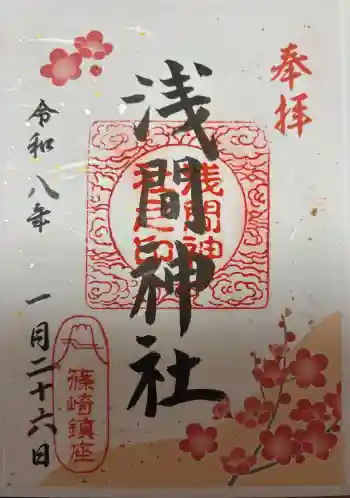 奉拝
浅間神社
浅間神
社之印
令和八年
一月二十六日
篠崎鎮座